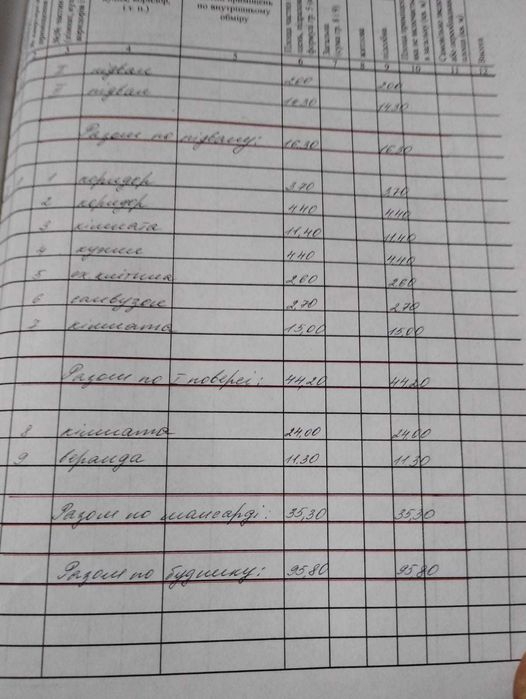 коридор,
і т. п.)
по внутрішньому
обміру
3 4 5 6 7 8 9 10 11 12
I підвал 2.00 2.00
II підвал 14.30 14.30
Разом по підвалу: 16.30 16.30
1 1 коридор 3.70 3.70
2 коридор 4.40 4.40
3 кімната 11,40 11,40
4 кухня 4.40 4.40
5 сх. клітина 2.60 2.60
6 санвузол 2.70 2.70
7 кімната 15,00 15,00
Разом по I поверсі: 44,20 44,20
8 кімната 24,00 24,00
9 веранда 11.30 11.30
Разом по мансарді: 35,30 35,30
Разом по будинку: 95,80 95,80